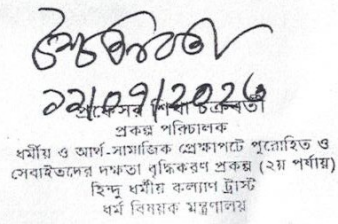 ২২/০৭/২০২৬
প্রফেসর শিখা চক্রবর্তী
প্রকল্প পরিচালক
ধর্মীয় ও আর্থ-সামাজিক প্রেক্ষাপটে পুরোহিত ও
সেবাইতদের দক্ষতা বৃদ্ধিকরণ প্রকল্প (২য় পর্যায়)
হিন্দু ধর্মীয় কল্যাণ ট্রাস্ট
ধর্ম বিষয়ক মন্ত্রণালয়